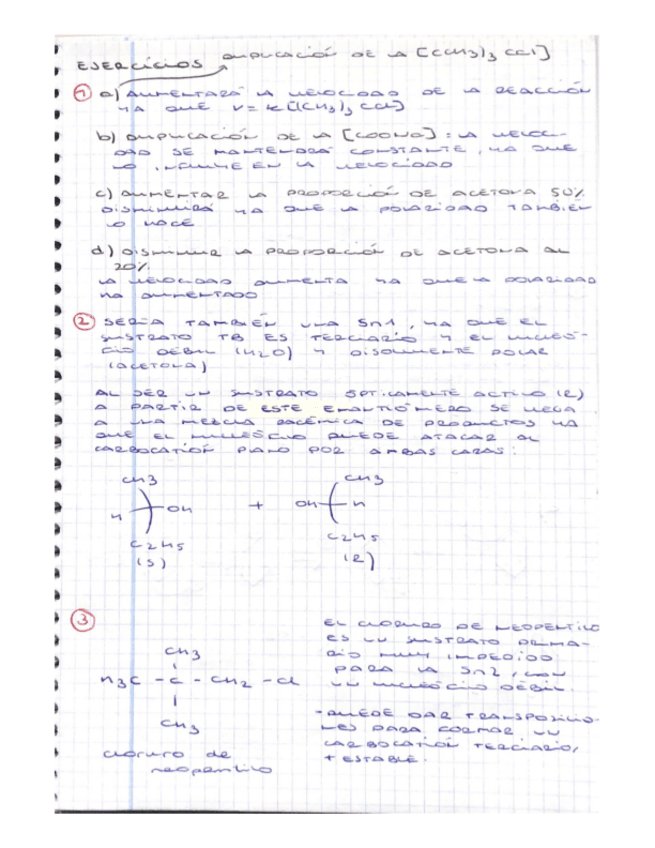 EJERCICIOS DUPLICACIÓN DE LA [C(CH3)3 CCl]
1 a) AUMENTARÁ LA VELOCIDAD DE LA REACCIÓN
YA QUE V = K [(CH3)3 CCl]
b) DUPLICACIÓN DE LA [COONa] : LA VELOCI-
DAD SE MANTENDRÁ CONSTANTE, YA QUE
NO INFLUYE EN LA VELOCIDAD
c) AUMENTAR LA PROPORCIÓN DE ACETONA 50%
DISMINUIRÁ YA QUE LA POLARIDAD TAMBIÉN
LO HACE
d) DISMINUIR LA PROPORCIÓN DE ACETONA AL
20%
LA VELOCIDAD AUMENTA YA QUE LA POLARIDAD
HA AUMENTADO
2 SERÍA TAMBIÉN UNA SN1, YA QUE EL
SUSTRATO TB ES TERCIARIO Y EL NUCLEÓ-
FILO DÉBIL (H2O) Y DISOLVENTE POLAR
(ACETONA)
AL SER UN SUSTRATO ÓPTICAMENTE ACTIVO (R)
A PARTIR DE ESTE ENANTIÓMERO SE LLEGA
A UNA MEZCLA RACÉMICA DE PRODUCTOS YA
QUE EL NUCLEÓFILO PUEDE ATACAR AL
CARBOCATIÓN PLANO POR AMBAS CARAS:
CH3 CH3
H OH + OH H
C2H5 C2H5
(S) (R)
3
CH3
H3C - C - CH2 - Cl
CH3
cloruro de
neopentilo
EL CLORURO DE NEOPENTILO
ES UN SUSTRATO PRIMA-
RIO MUY IMPEDIDO
PARA LA SN2, CON
UN NUCLEÓFILO DÉBIL.
- PUEDE DAR TRANSPOSICIO-
NES PARA FORMAR UN
CARBOCATIÓN TERCIARIO,
+ ESTABLE.